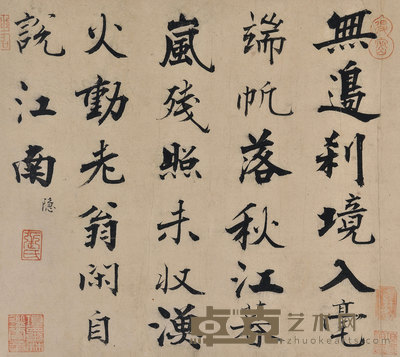 無邊刹境入毫
端帆落秋江暮
嵐殘照未收漁
火動老翁閑自
說江南
隱
卓克艺术网